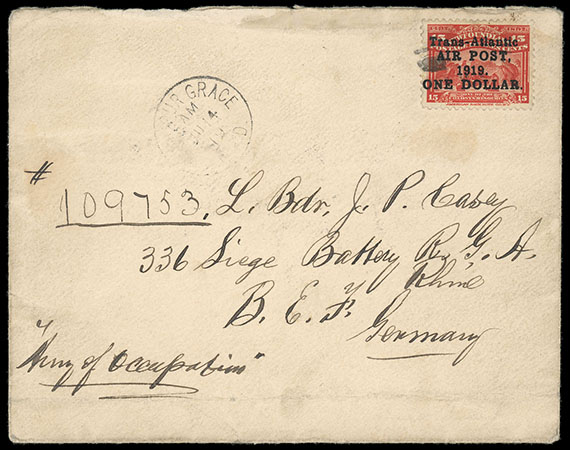 15 15
Trans-Atlantic
AIR POST,
1919.
ONE DOLLAR.
15 15
UR GRACE
AM
14
#
109753, L. Bdr. J. P. Casey
336 Siege Battery R. G. A.
Rhine
B. E. F.
Germany
"Army of Occupation"